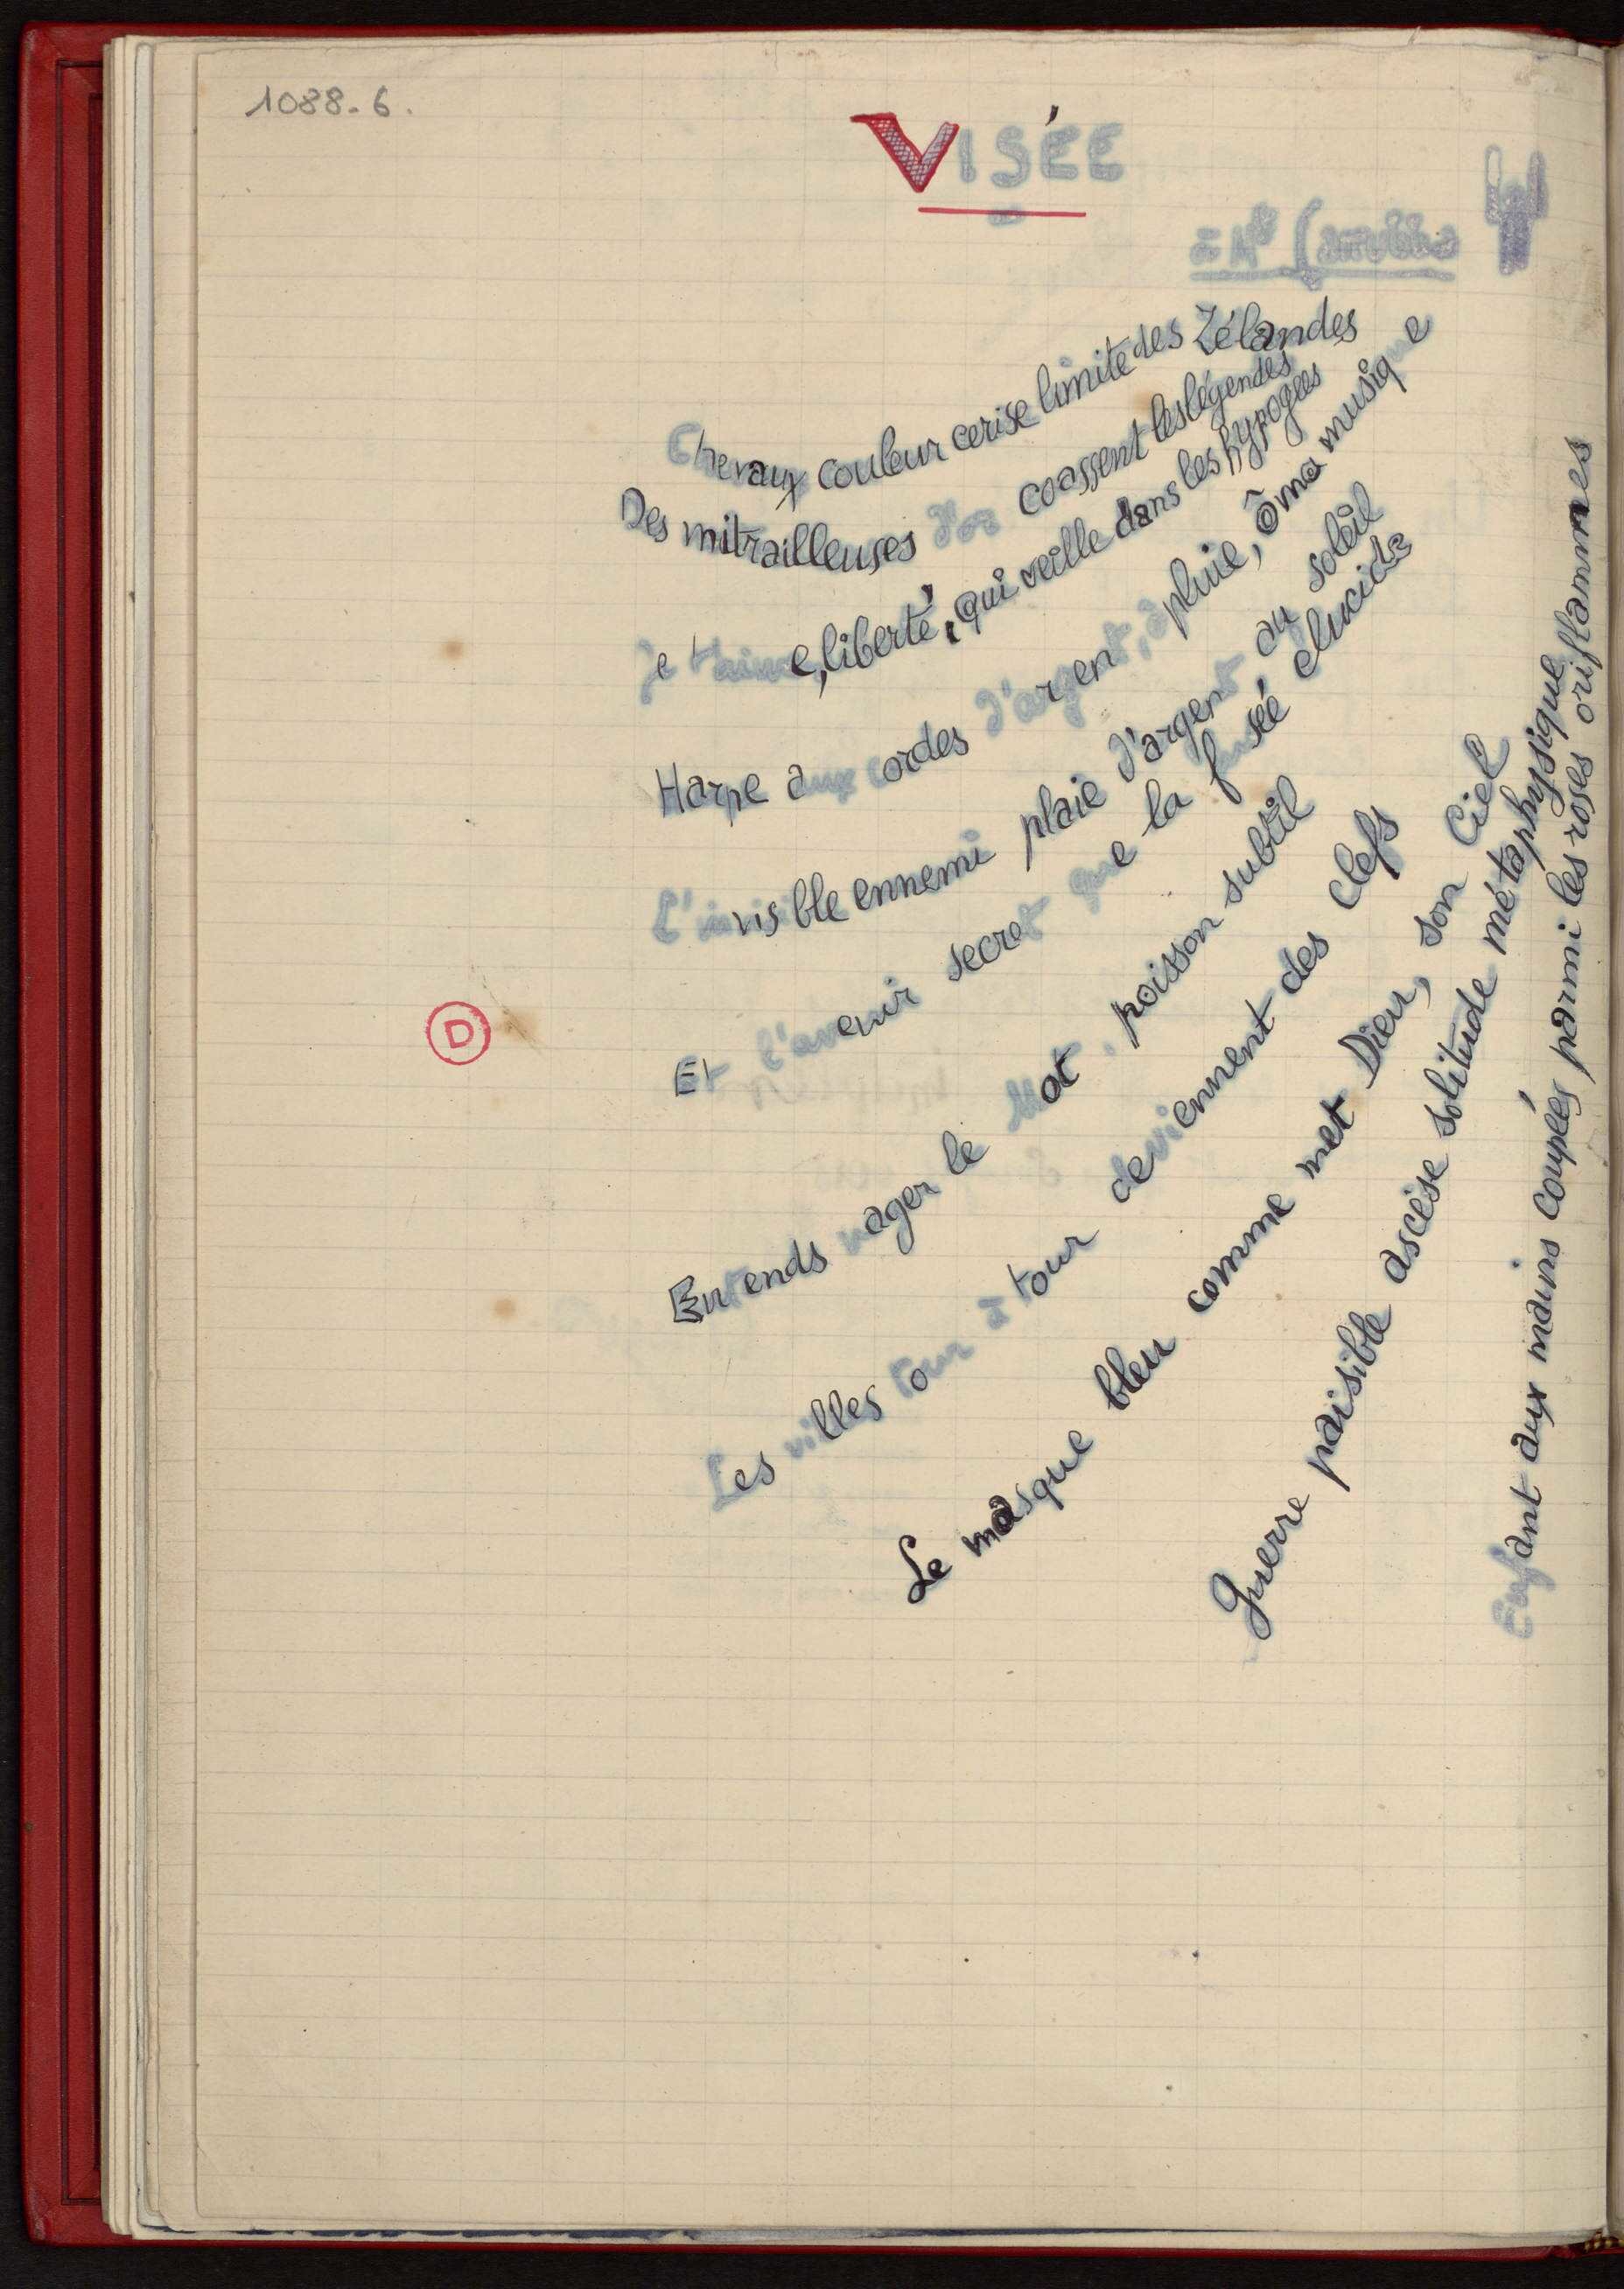 1088-6.
VISÉE
Chevaux couleur cerise limite des Zélandes
Des mitrailleuses d'or coassent les légendes
je t'aime, liberté, qui veille dans les hypogées
Harpe aux cordes d'argent, ô pluie, ô ma musique
L'invisible ennemi plaie d'argent au soleil
Et l'avenir secret que la fusée élucide
Entends nager le Mot, poisson subtil
Les villes tour à tour deviennent des clefs
Le masque bleu comme met Dieu, son Ciel
Guerre paisible ascèse solitude métaphysique
Enfant aux mains coupées parmi les roses oriflammes
D